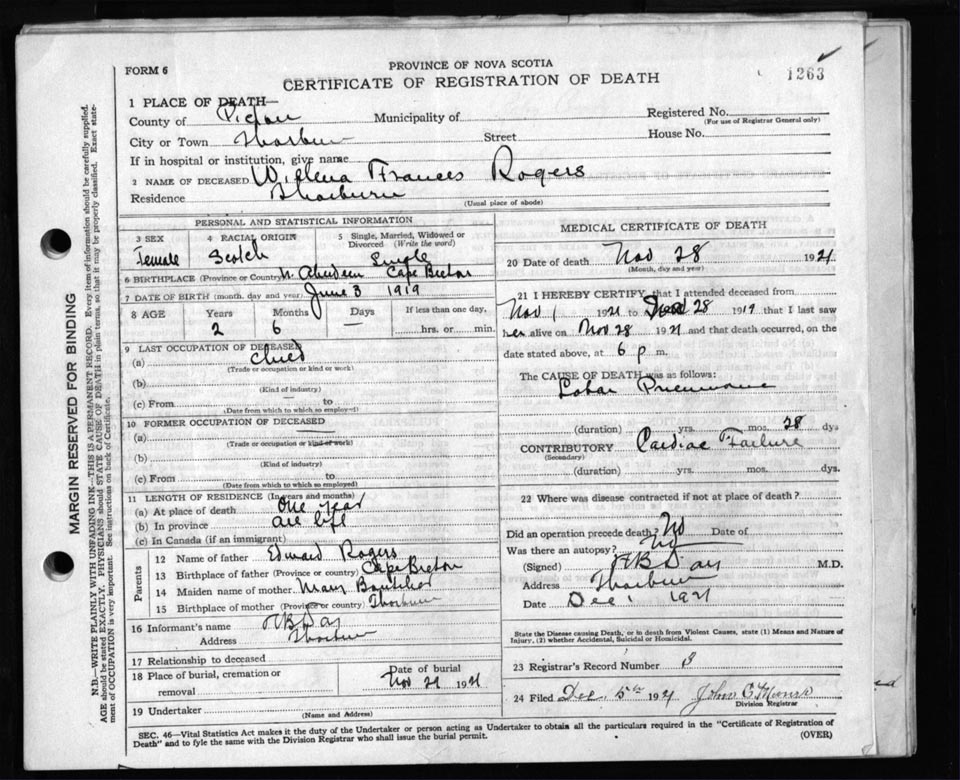 FORM 6
PROVINCE OF NOVA SCOTIA
CERTIFICATE OF REGISTRATION OF DEATH
1263
1 PLACE OF DEATH—
County of Pictou Municipality of Registered No.
(For use of Registrar General only)
City or Town Thorburn Street House No.
If in hospital or institution, give name
2 NAME OF DECEASED Willena Frances Rogers
Residence Thorburn
(Usual place of abode)
PERSONAL AND STATISTICAL INFORMATION
3 SEX 4 RACIAL ORIGIN 5 Single, Married, Widowed or Divorced (Write the word)
Female Scotch Single
6 BIRTHPLACE (Province or Country) N. Aberdeen Cape Breton
7 DATE OF BIRTH (month, day and year) June 3 1919
8 AGE Years Months Days If less than one day,
2 6 — hrs. or min.
9 LAST OCCUPATION OF DECEASED
(a) Child
(Trade or occupation or kind or work)
(b)
(Kind of industry)
(c) From to
(Date from which to which so employed)
10 FORMER OCCUPATION OF DECEASED
(a)
(Trade or occupation or kind of work)
(b)
(Kind of industry)
(c) From to
(Date from which to which so employed)
11 LENGTH OF RESIDENCE (In years and months)
(a) At place of death One year
(b) In province all life
(c) In Canada (if an immigrant)
Parents
12 Name of father Edward Rogers
13 Birthplace of father (Province or country) Cape Breton
14 Maiden name of mother Mary Boutilier
15 Birthplace of mother (Province or country) Thorburn
16 Informant's name
Address Thorburn
17 Relationship to deceased
18 Place of burial, cremation or removal Date of burial
Nov 29 1921
19 Undertaker
(Name and Address)
MEDICAL CERTIFICATE OF DEATH
20 Date of death Nov 28 1921
(Month, day and year)
21 I HEREBY CERTIFY, that I attended deceased from
Nov 1 1921 to 28 1919 that I last saw
her alive on Nov 28 1921 and that death occurred, on the
date stated above, at 6 p m.
The CAUSE OF DEATH was as follows:
Lobar Pneumonia
(duration) yrs. mos. 28 dys
CONTRIBUTORY Cardiac Failure
(Secondary)
(duration) yrs. mos. dys.
22 Where was disease contracted if not at place of death?
Did an operation precede death? No Date of
Was there an autopsy? No
(Signed) Day M.D.
Address Thorburn
Date Dec 1 1921
State the Disease causing Death, or to death from Violent Causes, state (1) Means and Nature of Injury, (2) whether Accidental, Suicidal or Homicidal.
23 Registrar's Record Number
24 Filed Dec 5th 1921 John C Munro
Division Registrar
SEC. 46—Vital Statistics Act makes it the duty of the Undertaker or person acting as Undertaker to obtain all the particulars required in the "Certificate of Registration of
Death" and to fyle the same with the Division Registrar who shall issue the burial permit. (OVER)
MARGIN RESERVED FOR BINDING
N.B.—WRITE PLAINLY WITH UNFADING INK—THIS IS A PERMANENT RECORD. Every item of information should be carefully supplied.
AGE should be stated EXACTLY. PHYSICIANS should STATE CAUSE OF DEATH in plain terms, so that it may be properly classified. Exact statement of OCCUPATION is very important. See instructions on back of Certificate.